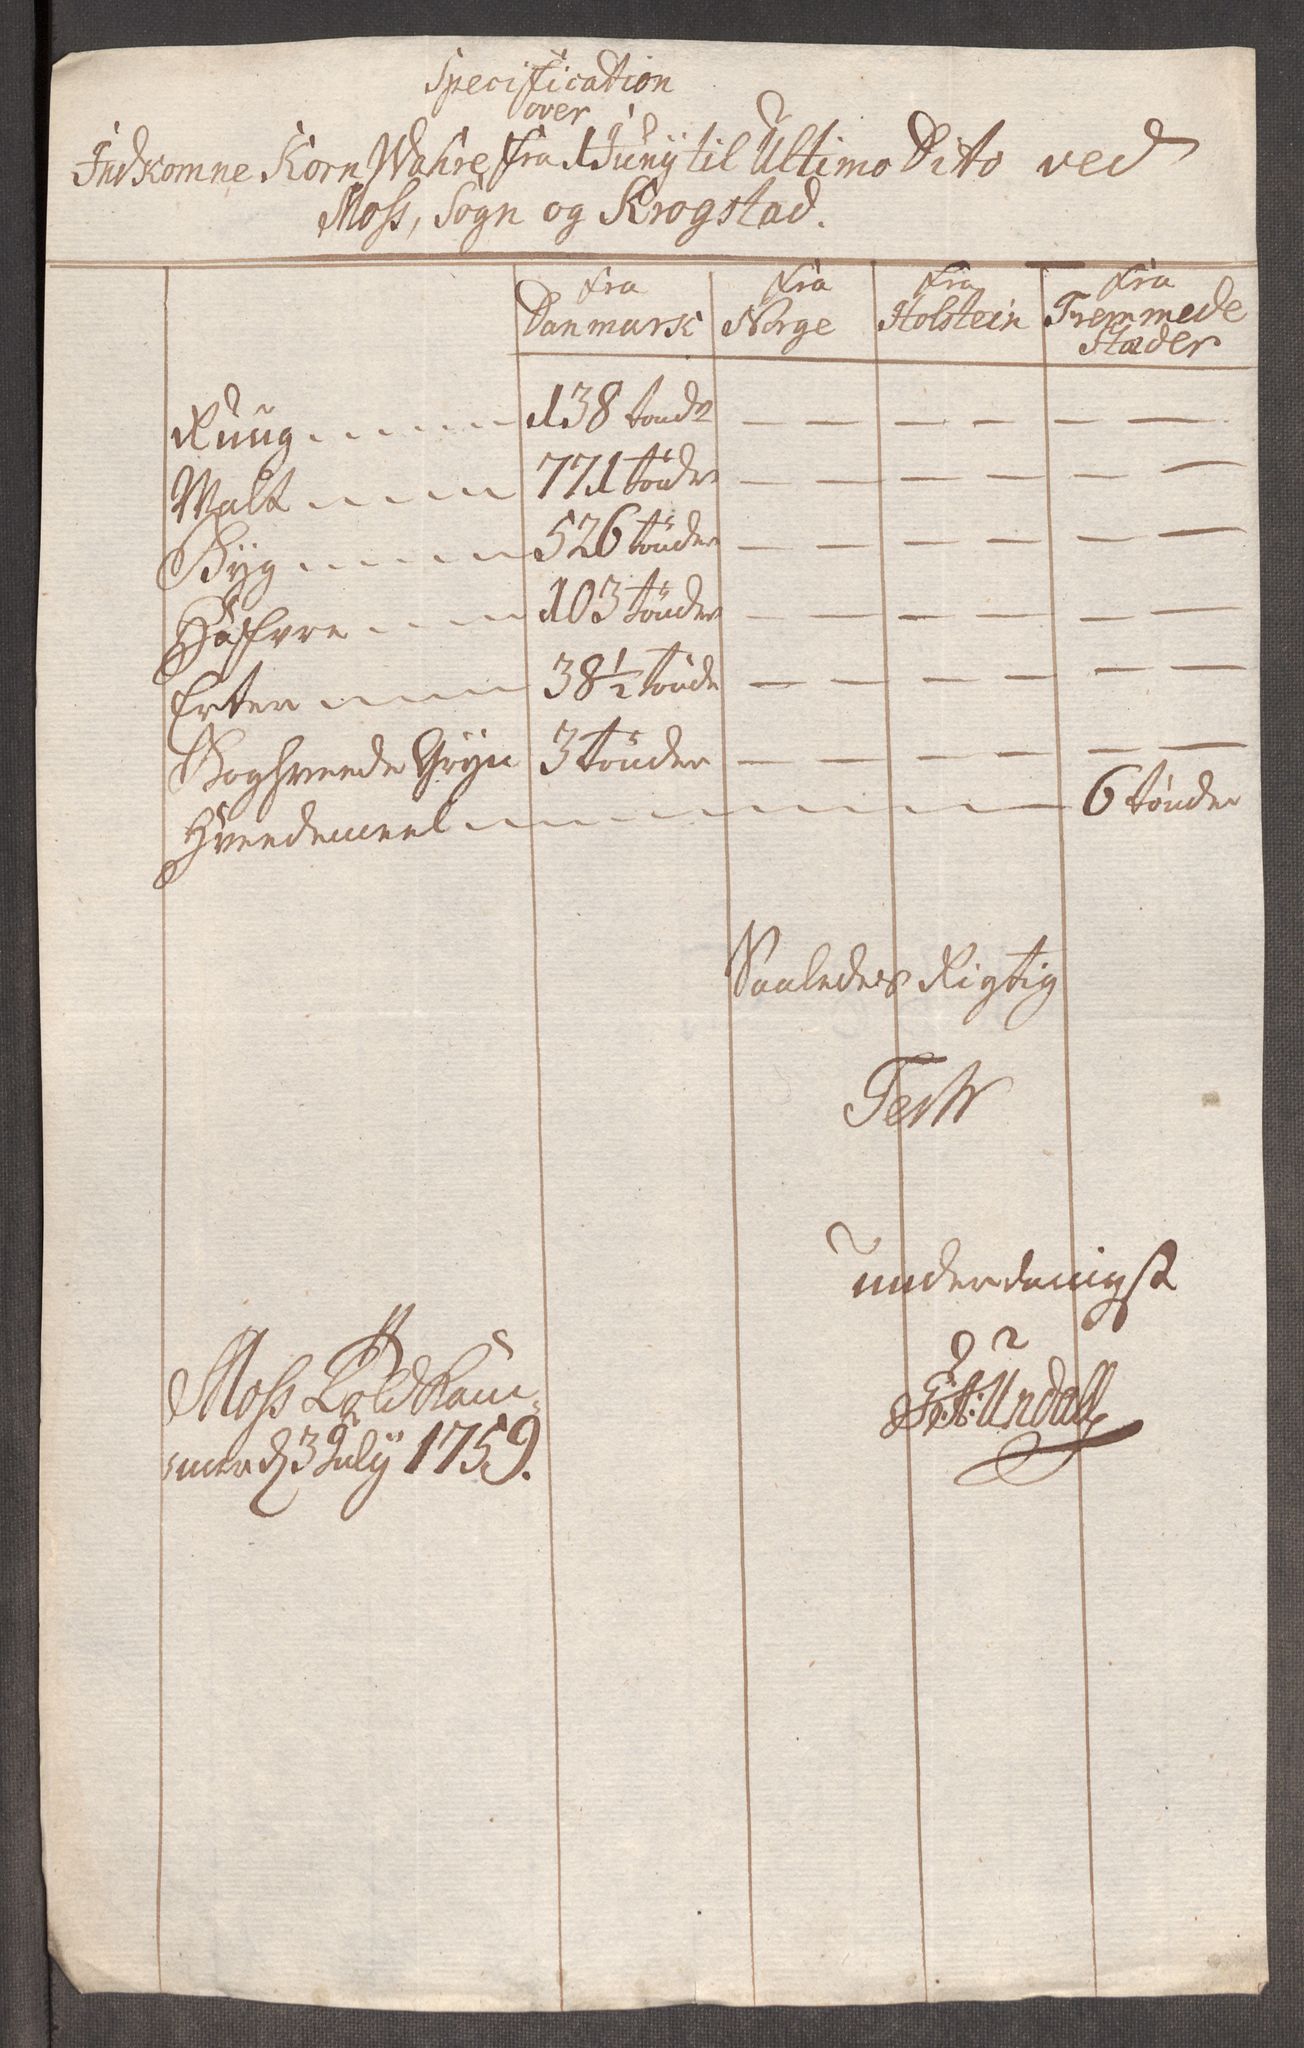 Specification
over
Indkomne Korn Wahre fra 1 Juny til Ultimo Dito ved
Moss, Sogn og Krogstad.
fra Danmark fra Norge fra Holstein fra Fremmede Stæder
Ruug 138 tønder — — — — — —
Malt 771 tønder — — — — — —
Byg 526 tønder — — — — — —
Hafvre 103 tønder — — — — — —
Erter 38 1/2 tønde — — — — — —
Boghveede Gryn 3 tønder — — — — — —
Hveedemeel 6 tønder
Saaledes Rigtig
Test
underdanigst
Moss Toldkam-
mer d 3 July 1759.
Undall